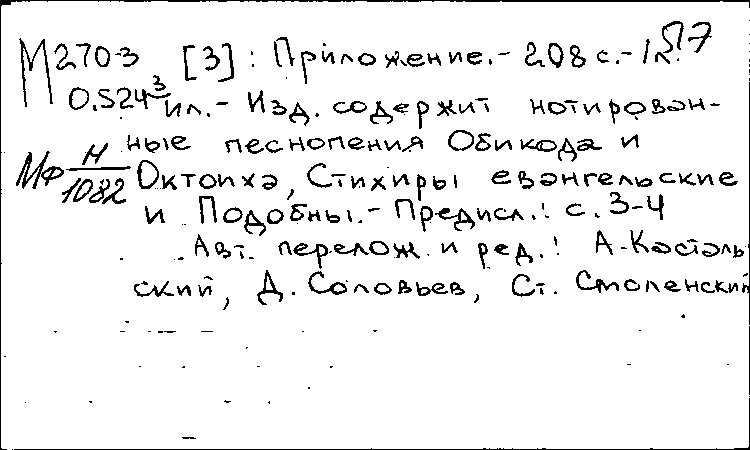 М270-3 [3] : Приложение.- 208 с.- 1 л.
0.524³ ил.- Изд. содержит нотирован-
ные песнопения Обихода и
Мф Н/1082 Октоиха, Стихиры евангельские
и Подобны.- Предисл.: с. 3-4
Авт. перелож. и ред.: А. Касталь
ский, Д. Соловьев, Ст. Смоленский